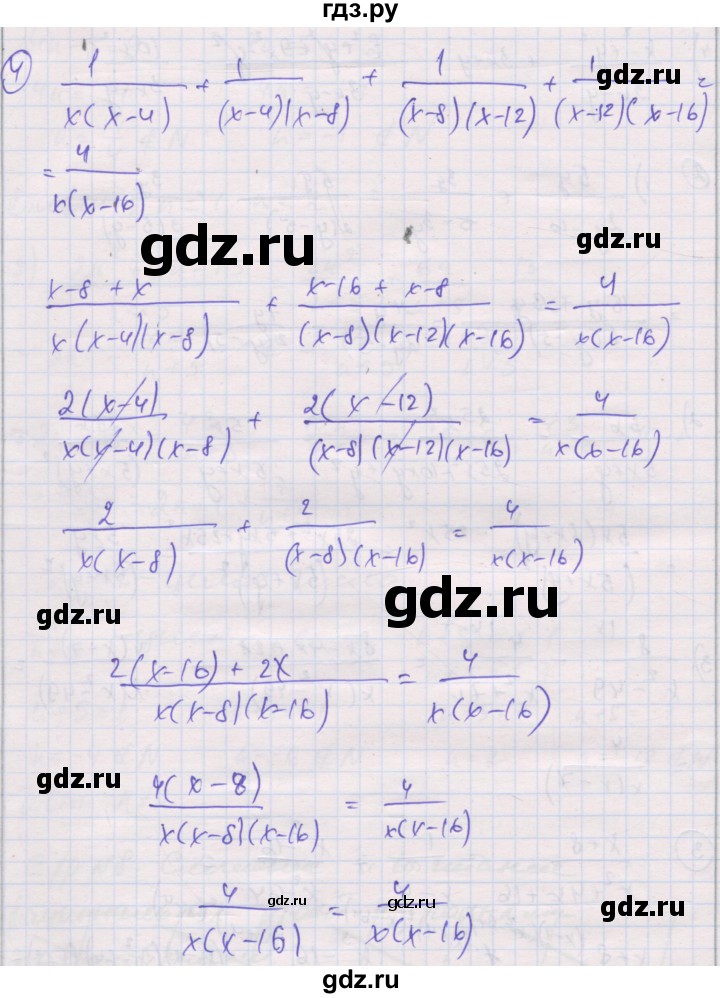 гдз.ру
④ 1/(x(x-4)) + 1/((x-4)(x-8)) + 1/((x-8)(x-12)) + 1/((x-12)(x-16)) =
= 4/(x(x-16))
(x-8+x)/(x(x-4)(x-8)) + (x-16+x-8)/((x-8)(x-12)(x-16)) = 4/(x(x-16))
2(x-4)/(x(x-4)(x-8)) + 2(x-12)/((x-8)(x-12)(x-16)) = 4/(x(x-16))
2/(x(x-8)) + 2/((x-8)(x-16)) = 4/(x(x-16))
(2(x-16)+2x)/(x(x-8)(x-16)) = 4/(x(x-16))
4(x-8)/(x(x-8)(x-16) = 4/(x(x-16)
4/(x(x-16)) = 4/(x(x-16))
gdz.ru
gdz.ru
gdz.ru
gdz.ru
gdz.ru
gdz.ru
gdz.ru
gdz.ru
gdz.ru
gdz.ru
гдз.ру